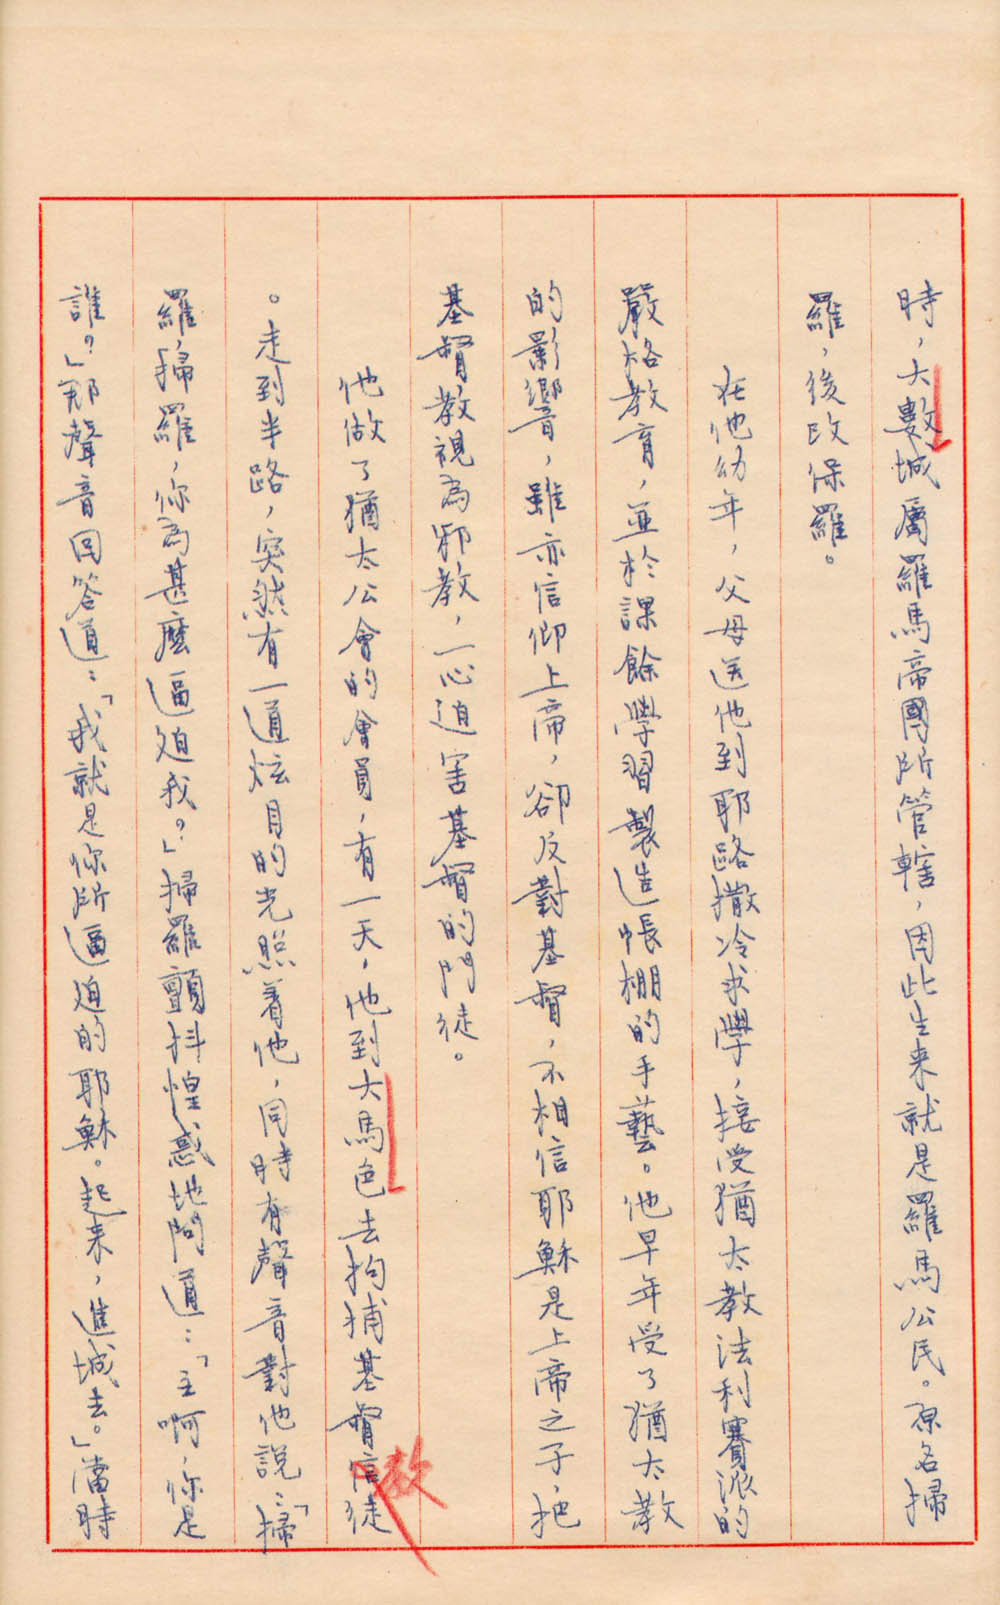 時，大數城屬羅馬帝國所管轄，因此生来就是羅馬公民。原名掃
羅，後改保羅。
在他幼年，父母送他到耶路撒冷求學，接受猶太教法利賽派的
嚴格教育，並於課餘學習製造帳棚的手藝。他早年受了猶太教
的影響，雖亦信仰上帝，卻反對基督，不相信耶穌是上帝之子，把
基督教視為邪教，一心迫害基督的門徒。
他做了猶太公會的會員，有一天，他到大馬色去拘捕基督信徒
教
。走到半路，突然有一道炫目的光照着他，同時有聲音對他說：「掃
羅，掃羅，你為甚麼逼迫我？」掃羅顫抖惶惑地問道：「主啊，你是
誰？」那聲音回答道：「我就是你所逼迫的耶穌。起来，進城去。」當時